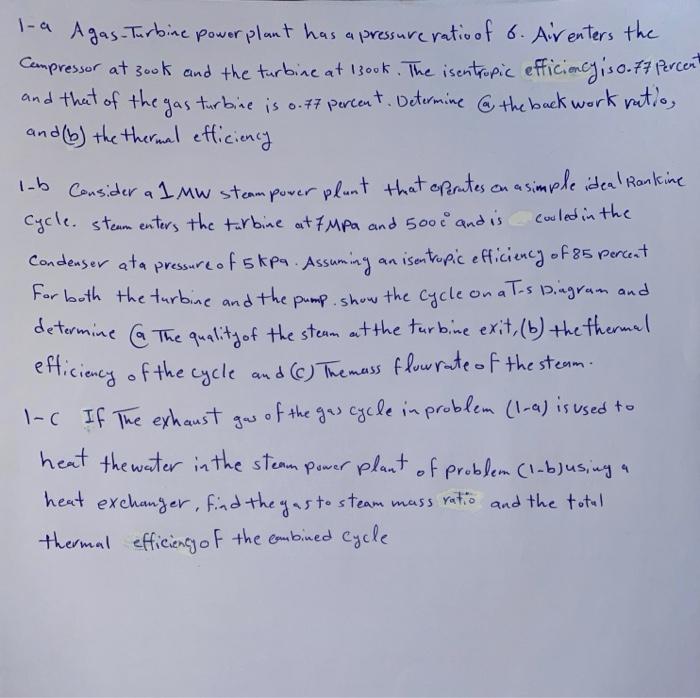 1-a A gas-Turbine power plant has a pressure ratio of 6. Air enters the
Compressor at 300k and the turbine at 1300k. The isentropic efficiency is 0.77 Percent
and that of the gas turbine is 0.77 percent. Determine (a) the back work ratio,
and (b) the thermal efficiency
1-b Consider a 1 MW steam power plant that operates on a simple ideal Rankine
Cycle. steam enters the turbine at 7 MPa and 500 c° and is cooled in the
Condenser at a pressure of 5 kpa. Assuming an isentropic efficiency of 85 percent
For both the turbine and the pump. show the cycle on a T-s Diagram and
determine (a) The quality of the steam at the turbine exit, (b) the thermal
efficiency of the cycle and (c) The mass flow rate of the steam.
1-c If The exhaust gas of the gas cycle in problem (1-a) is used to
heat the water in the steam power plant of problem (1-b) using a
heat exchanger, find the gas to steam mass ratio and the total
thermal efficiency of the combined cycle